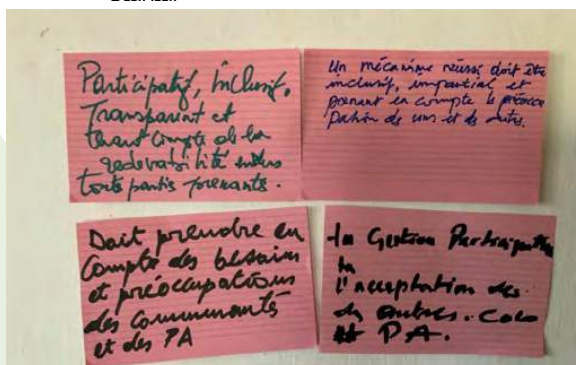 Participatif, Inclusif,
Transparent et
tenant compte de la
redevabilité entre
toute partis prenants.
Un mécanisme réussi doit être
inclusif, impartial et
prenant en compte le préoccu
pation des uns et des autres.
Doit prendre en
Compte des besoins
et préoccupations
des Communautés
et des PA
La Gestion Participative
la
l'acceptation des
des autres. Coco
# PA.